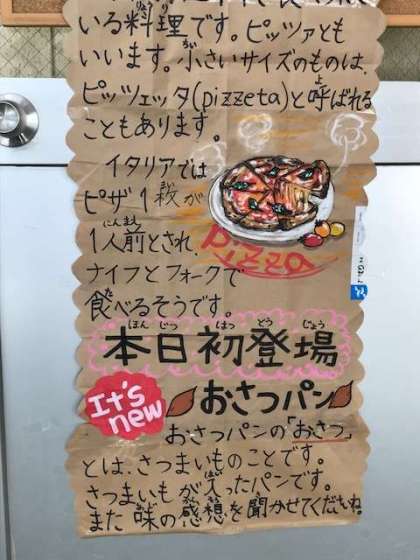 いる料理です。ピッツァとも
いいます。小さいサイズのものは、
ピッツェッタ(pizzeta)と呼ばれる
こともあります。
イタリアでは
ピザ1枚が
1人前とされ、
ナイフとフォークで
食べるそうです。
pizza
本日初登場
It's new
おさつパン
おさつパンの「おさつ」
とは、さつまいものことです。
さつまいもが入ったパンです。
また味の感想を聞かせてくださいね。